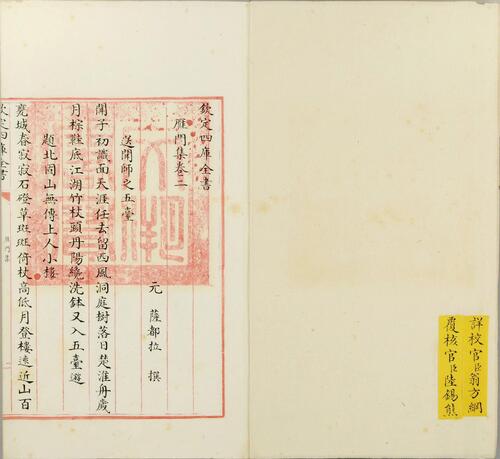 詳校官臣翁方綱
覆核官臣陸錫熊
欽定四庫全書
雁門集卷二
元 薩都拉 撰
送開師之五臺
開子初識面天涯任去留西風洞庭樹落日楚淮舟歲
月棕鞋底江湖竹杖頭丹陽繞洗鉢又入五臺遊
題北固山無傳上人小樓
甕城春寂寂石磴草斑斑倚杖高低月登樓遠近山百
欽定四庫全書